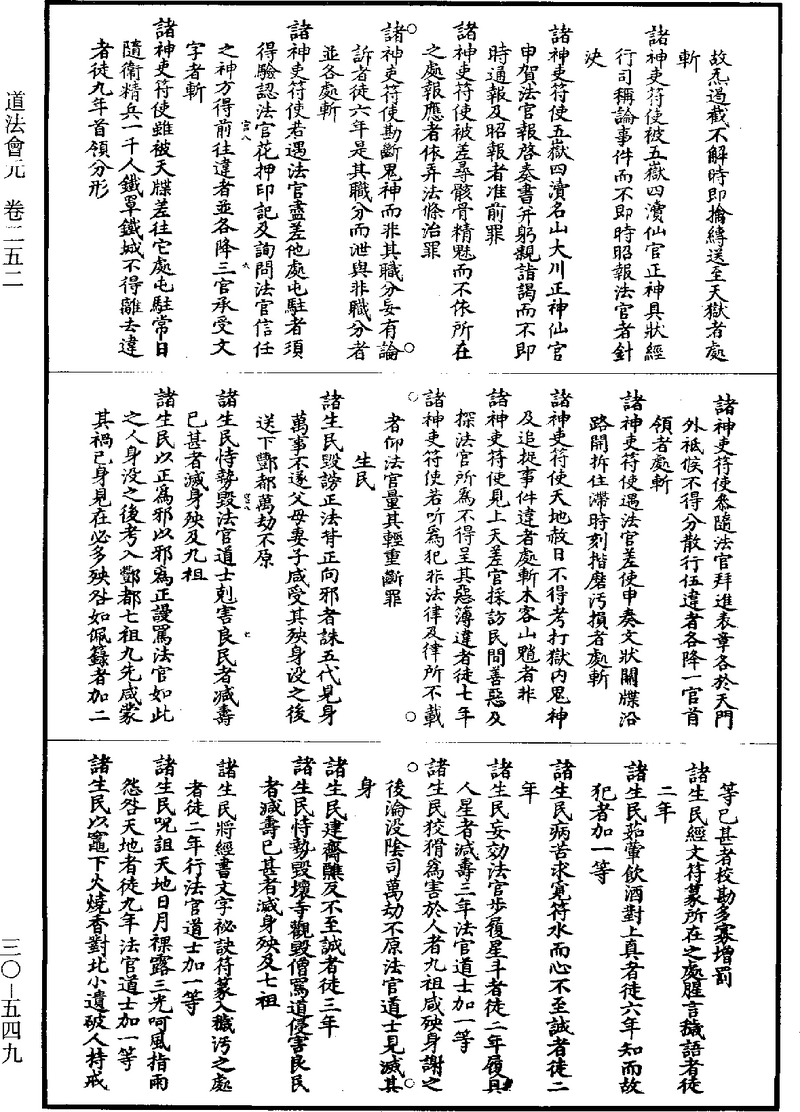 道法會元　卷二五二
三〇－五四九
故炁過截不解時即擒縛送至天獄者處
斬
諸神吏符使被五嶽四瀆仙官正神具狀經
行司稱論事件而不即時昭報法官者針
決
諸神吏符使五嶽四瀆名山大川正神仙官
申賀法官報啓奏書并躬親詣謁而不即
時通報及昭報者准前罪
諸神吏符使被差尋骸骨精魅而不依所在
之處報應者依弄法條治罪
諸神吏符使勘斷鬼神而非其職分妄有論
訴者徒六年是其職分而泄與非職分者
並各處斬
諸神吏符使若遇法官盡差他處屯駐者須
得驗認法官花押印記及詢問法官信任
之神方得前往違者並各降三官承受文
字者斬
諸神吏符使雖被天牒差往它處屯駐常日
隨衛精兵一千人鐵罩鐵城不得離去違
者徒九年首領分形
諸神吏符使叅隨法官拜進表章各於天門
外祗候不得分散行伍違者各降一官首
領者處斬
諸神吏符使遇法官差使申奏文狀關牒沿
路開拆住滯時刻揩磨污損者處斬
諸神吏符使天地赦日不得考打獄內鬼神
及追捉事件違者處斬木客山魈者非
諸神吏符使見上天差官採訪民間善惡及
探法官所爲不得呈其惡簿違者徒七年
諸神吏符使若所爲犯非法律及律所不載
者仰法官量其輕重斷罪
生民
諸生民毀謗正法背正向邪者誅五代見身
萬事不遂父母妻子咸受其殃身没之後
送下酆都萬劫不原
諸生民恃勢毀法官道士剋害良民者減壽
已甚者滅身殃及九祖
諸生民以正爲邪以邪爲正謾罵法官如此
之人身没之後考入酆都七祖九先咸蒙
其禍己身見在必多殃咎如佩籙者加二
等已甚者校勘多寡增罰
諸生民經文符篆所在之處腥言穢語者徒
二年
諸生民茹葷飲酒對上真者徒六年知而故
犯者加一等
諸生民病苦求寃符水而心不至誠者徒二
年
諸生民妄効法官步履星斗者徒二年履具
人星者減壽三年法官道士加一等
諸生民狡猾爲害於人者九祖咸殃身謝之
後淪没陰司萬劫不原法官道士見滅其
身
諸生民建齋醮及不至誠者徒三年
諸生民恃勢毀壞寺觀毀僧罵道侵害良民
者減壽已甚者滅身殃及七祖
諸生民將經書文字祕訣符篆入穢污之處
者徒二年行法官道士加一等
諸生民呪詛天地日月裸露三光呵風指雨
怨咎天地者徒九年法官道士加一等
諸生民以竈下火燒香對北小遺破人持戒